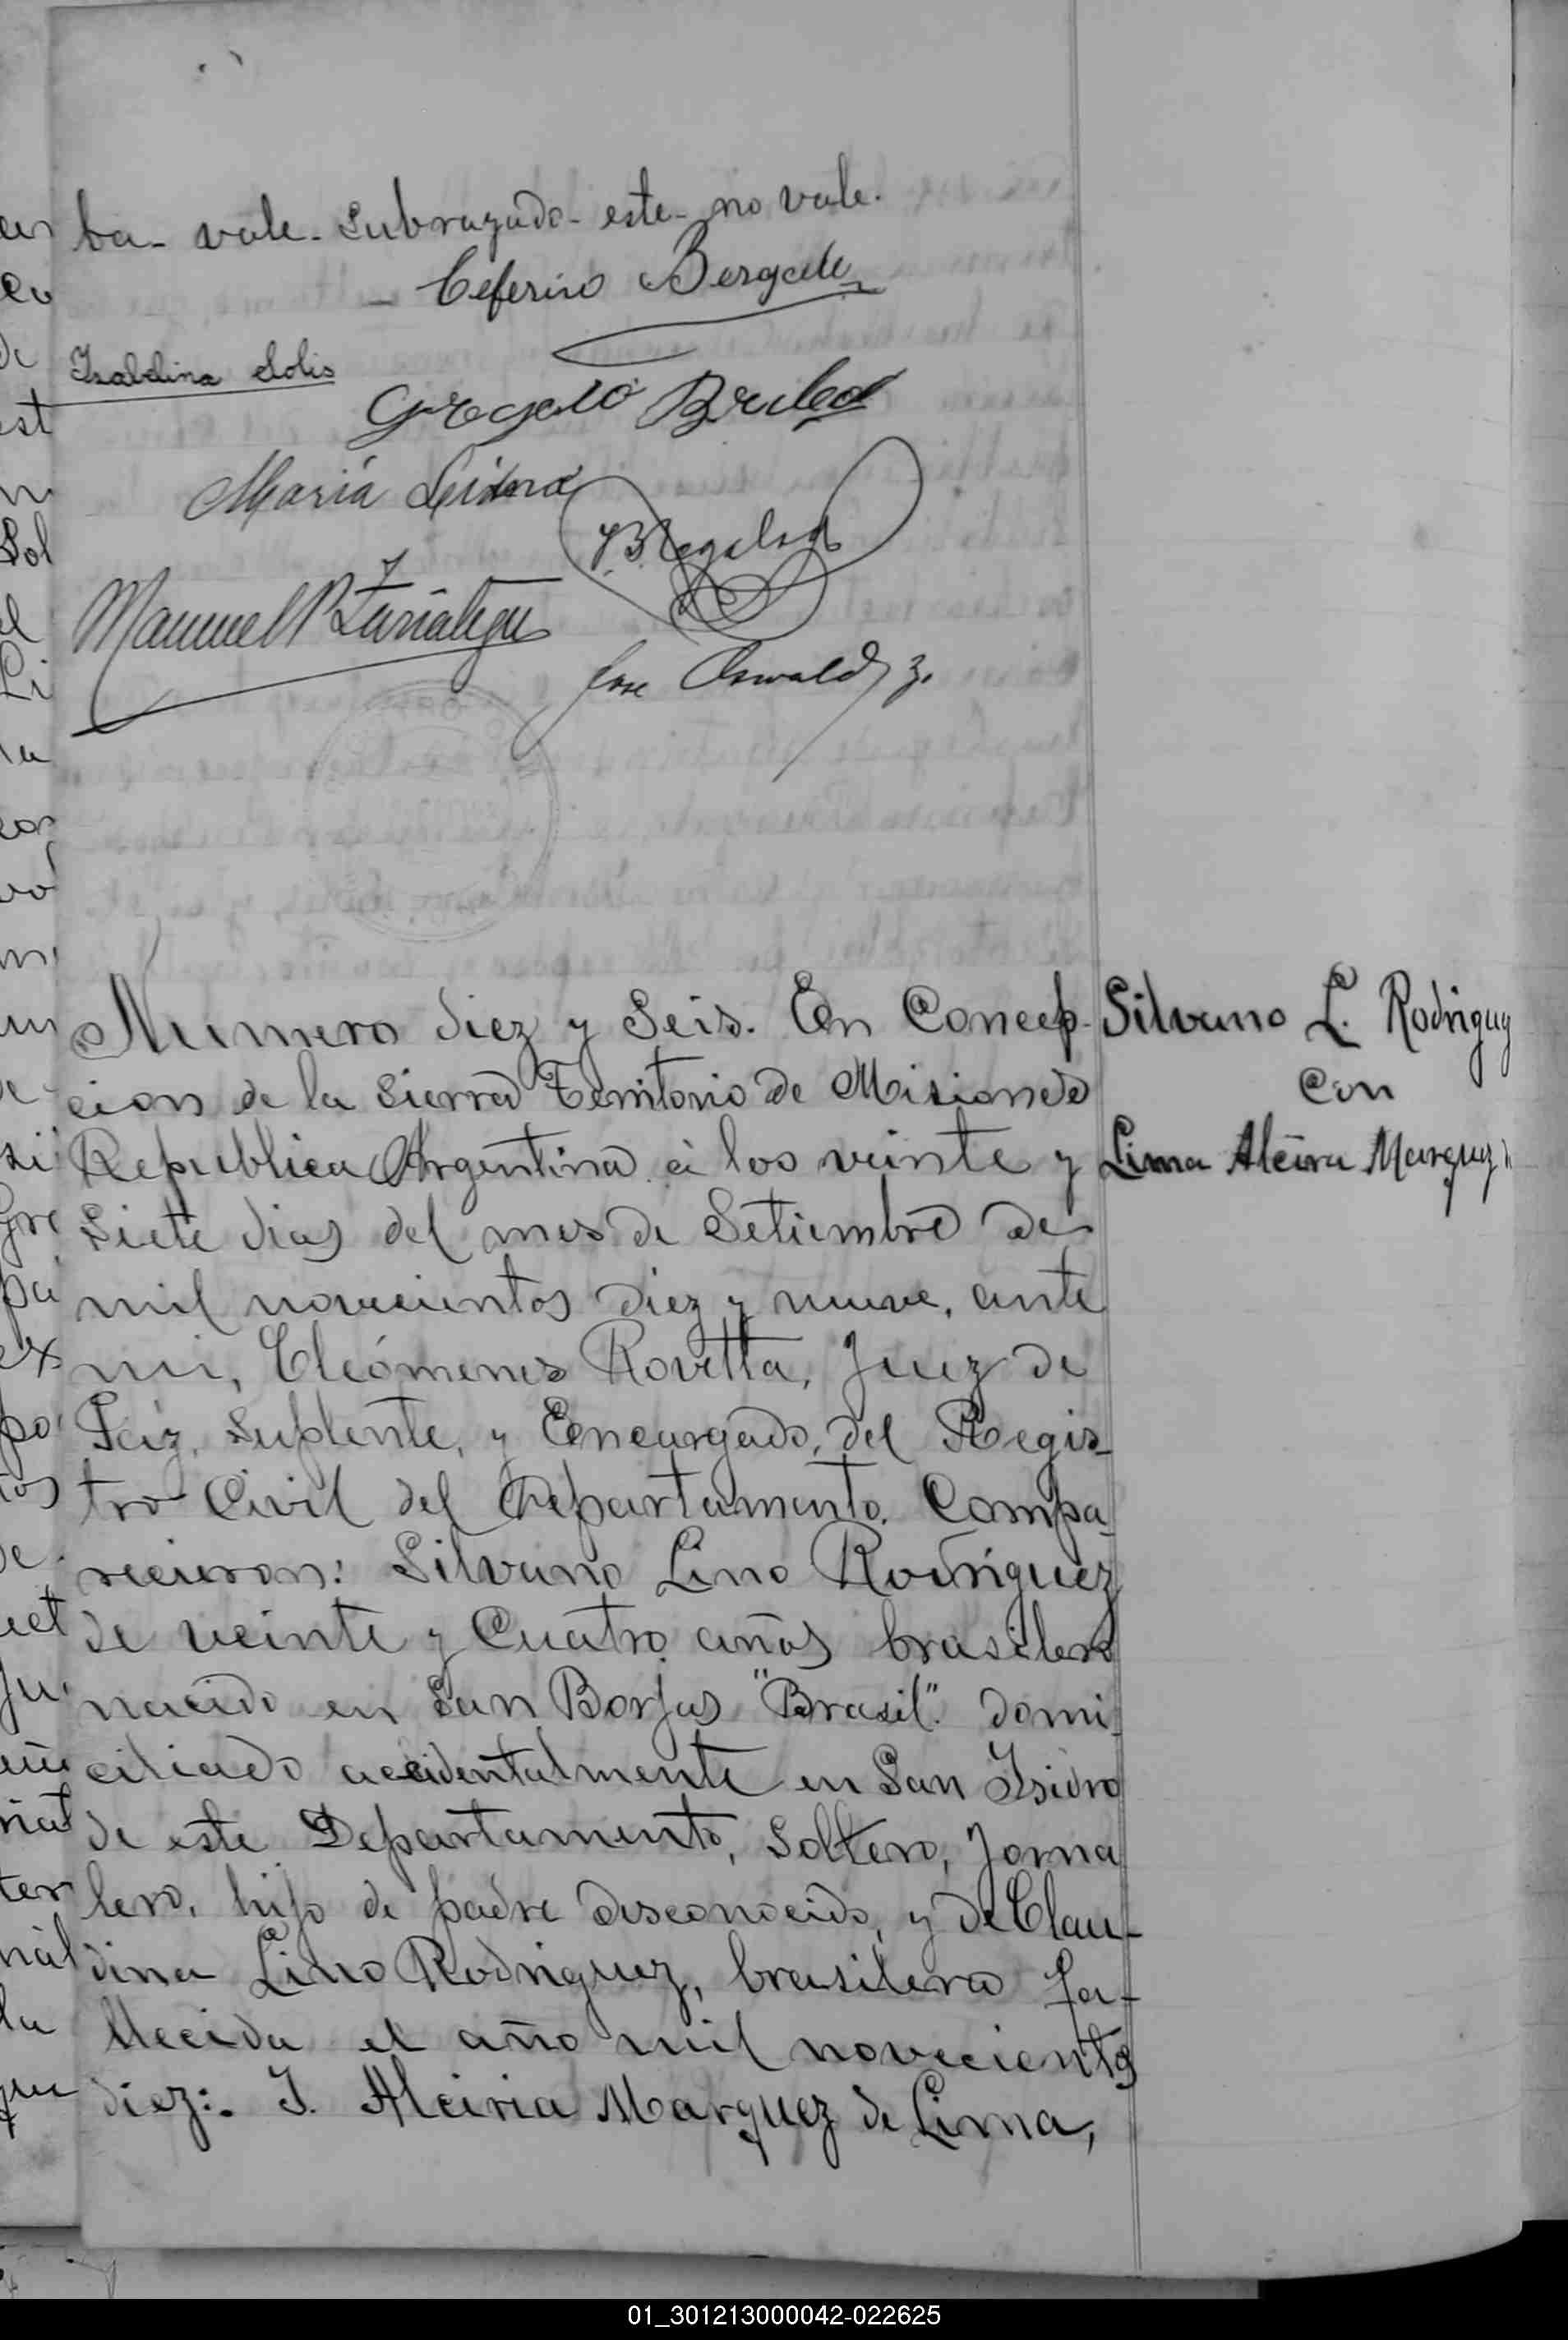 ba- vale- Subrayado- este- no vale.
Ceferino
Isabelina Solis
Gregorio
Maria
Manuel
Jose Oswald
Numero diez y Seis. En Concep-
cion de la Sierra Territorio de Misiones
Republica Argentina á los veinte y
Siete dias del mes de Setiembre de
mil novecientos diez y nueve, ante
mi, Cleómenes Rovetta, Juez de
Paz, Suplente, y Encargado, del Regis-
tro Civil del Departamento. Compa-
recieron: Silvano Lino Rodriguez
de veinte y Cuatro años brasilero
nacido en San Borjas "Brasil". domi-
ciliado accidentalmente en San Isidro
de este Departamento, Soltero, Jorna
lero, hijo de padre desconocido, y de Clau-
dina Lino Rodriguez, brasilera fa-
llecida el año mil novecientos
diez:. I. Alciria Marquez de Lima,
Silvano L. Rodriguez
Con
Lima Alcira Marquez
01_301213000042-022625